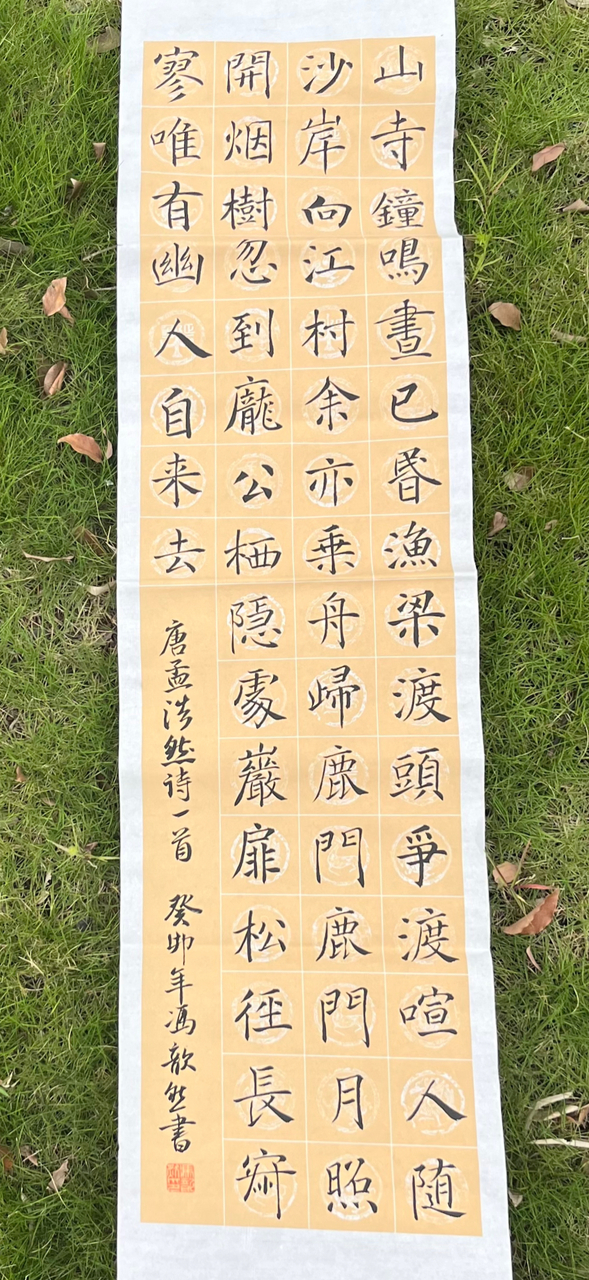 山寺鐘鳴晝已昏漁梁渡頭爭渡喧人随
沙岸向江村余亦乗舟歸鹿門鹿門月照
開烟樹忽到龐公栖隠處巖扉松徑長寂
寥唯有幽人自来去
唐孟浩然诗一首 癸卯年馮歆然書